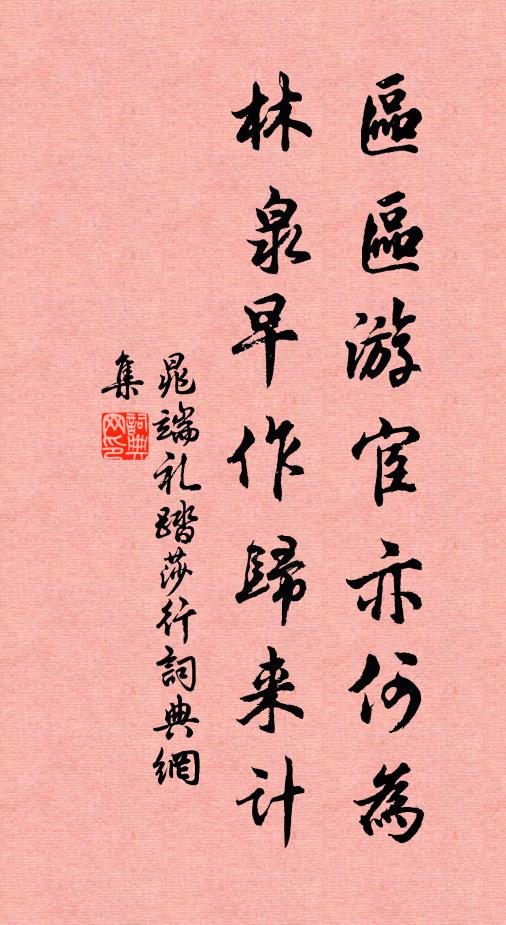 區區游宦亦何為
林泉早作歸來計
晁端礼踏莎行詞典網
集
詞典网印